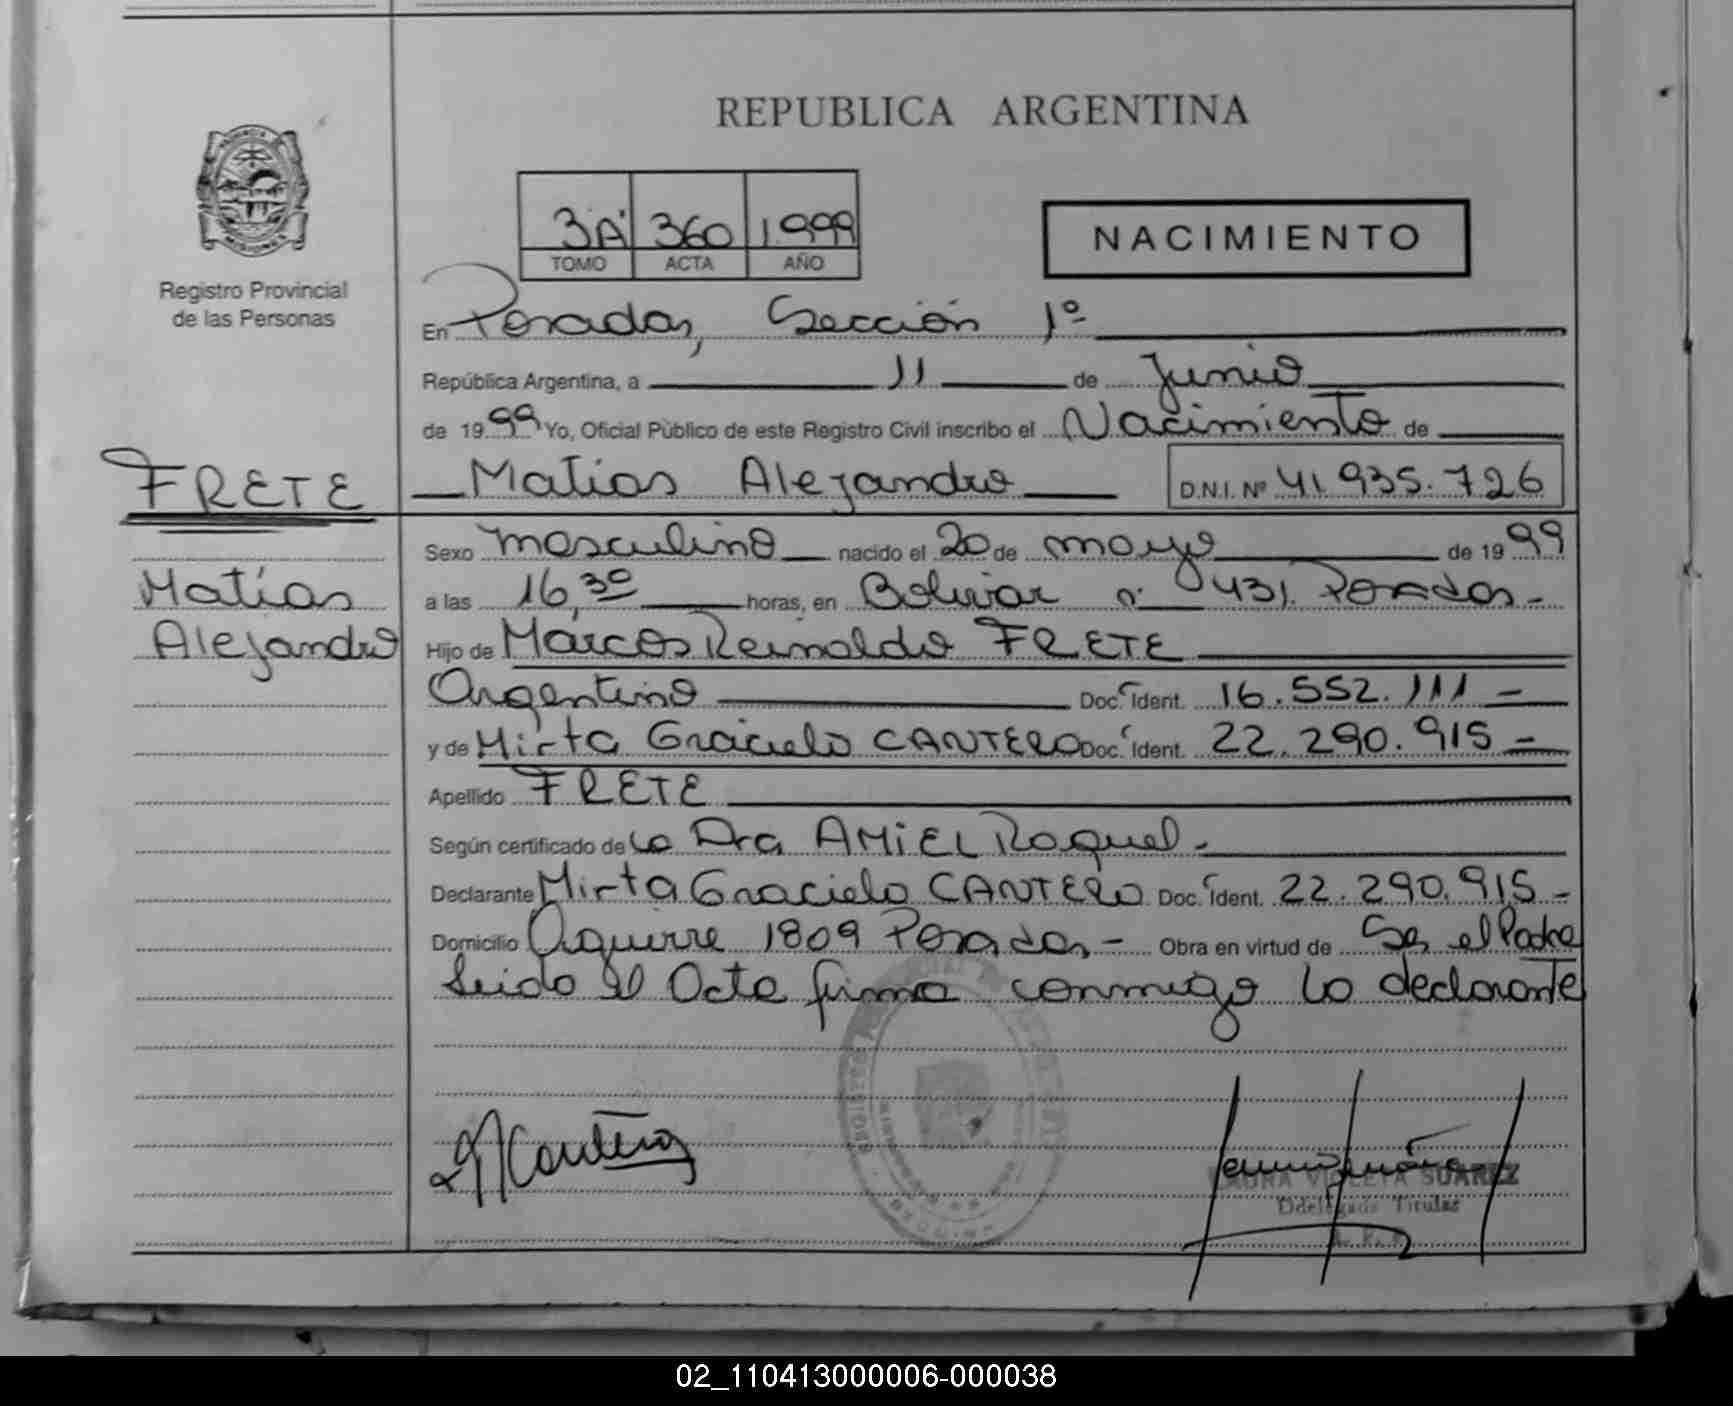 REPUBLICA ARGENTINA
3A 360 1999
TOMO ACTA AÑO
NACIMIENTO
Registro Provincial
de las Personas
En Posadas, Sección 1º
República Argentina, a 11 de Junio
de 1999 Yo, Oficial Público de este Registro Civil inscribo el Nacimiento de
FRETE
Matias Alejandro D.N.I. Nº 41.935.726
Sexo masculino nacido el 20 de mayo de 1999
Matías
a las 16,30 horas, en Bolivar nº 431. Posadas.-
Alejandro
Hijo de Marcos Reinaldo FRETE
Argentino Doc. Ident. 16.552.111 -
y de Mirta Graciela CANTERO Doc. Ident. 22.290.915 -
Apellido FRETE
Según certificado de la Dra AMiEL Raquel.-
Declarante Mirta Graciela CANTERO Doc. Ident. 22.290.915 -
Domicilio Aguirre 1809 Posadas,- Obra en virtud de Ser el Padre
Leida el Acta firma conmigo la declarante
Cantero
LAURA VIOLETA SUAREZ
Ddelegada Titular
02_110413000006-000038